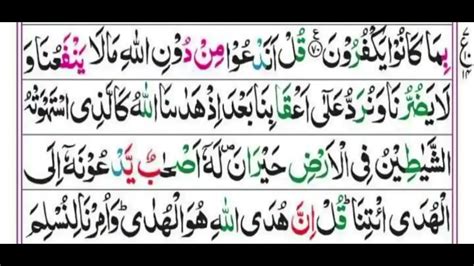 بِمَا كَانُوۡا یَكۡفُرُوۡنَ ﴿۷۰﴾ قُلۡ اَنَدۡعُوۡا مِنۡ دُوۡنِ اللّٰهِ مَالَا یَنۡفَعُنَا وَ
لَا یَضُرُّنَا وَنُرَدُّ عَلٰۤی اَعۡقَابِنَا بَعۡدَ اِذۡ هَدٰىنَا اللّٰهُ كَالَّذِی اسۡتَهۡوَتۡهُ
الشَّیٰطِیۡنُ فِی الۡاَرۡضِ حَیۡرَانَ ۪ لَهٗۤ اَصۡحٰبٌ یَّدۡعُوۡنَهٗۤ اِلَی
الۡهُدَی ائۡتِنَا ؕ قُلۡ اِنَّ هُدَی اللّٰهِ هُوَ الۡهُدٰی ؕ وَاُمِرۡنَا لِنُسۡلِمَ